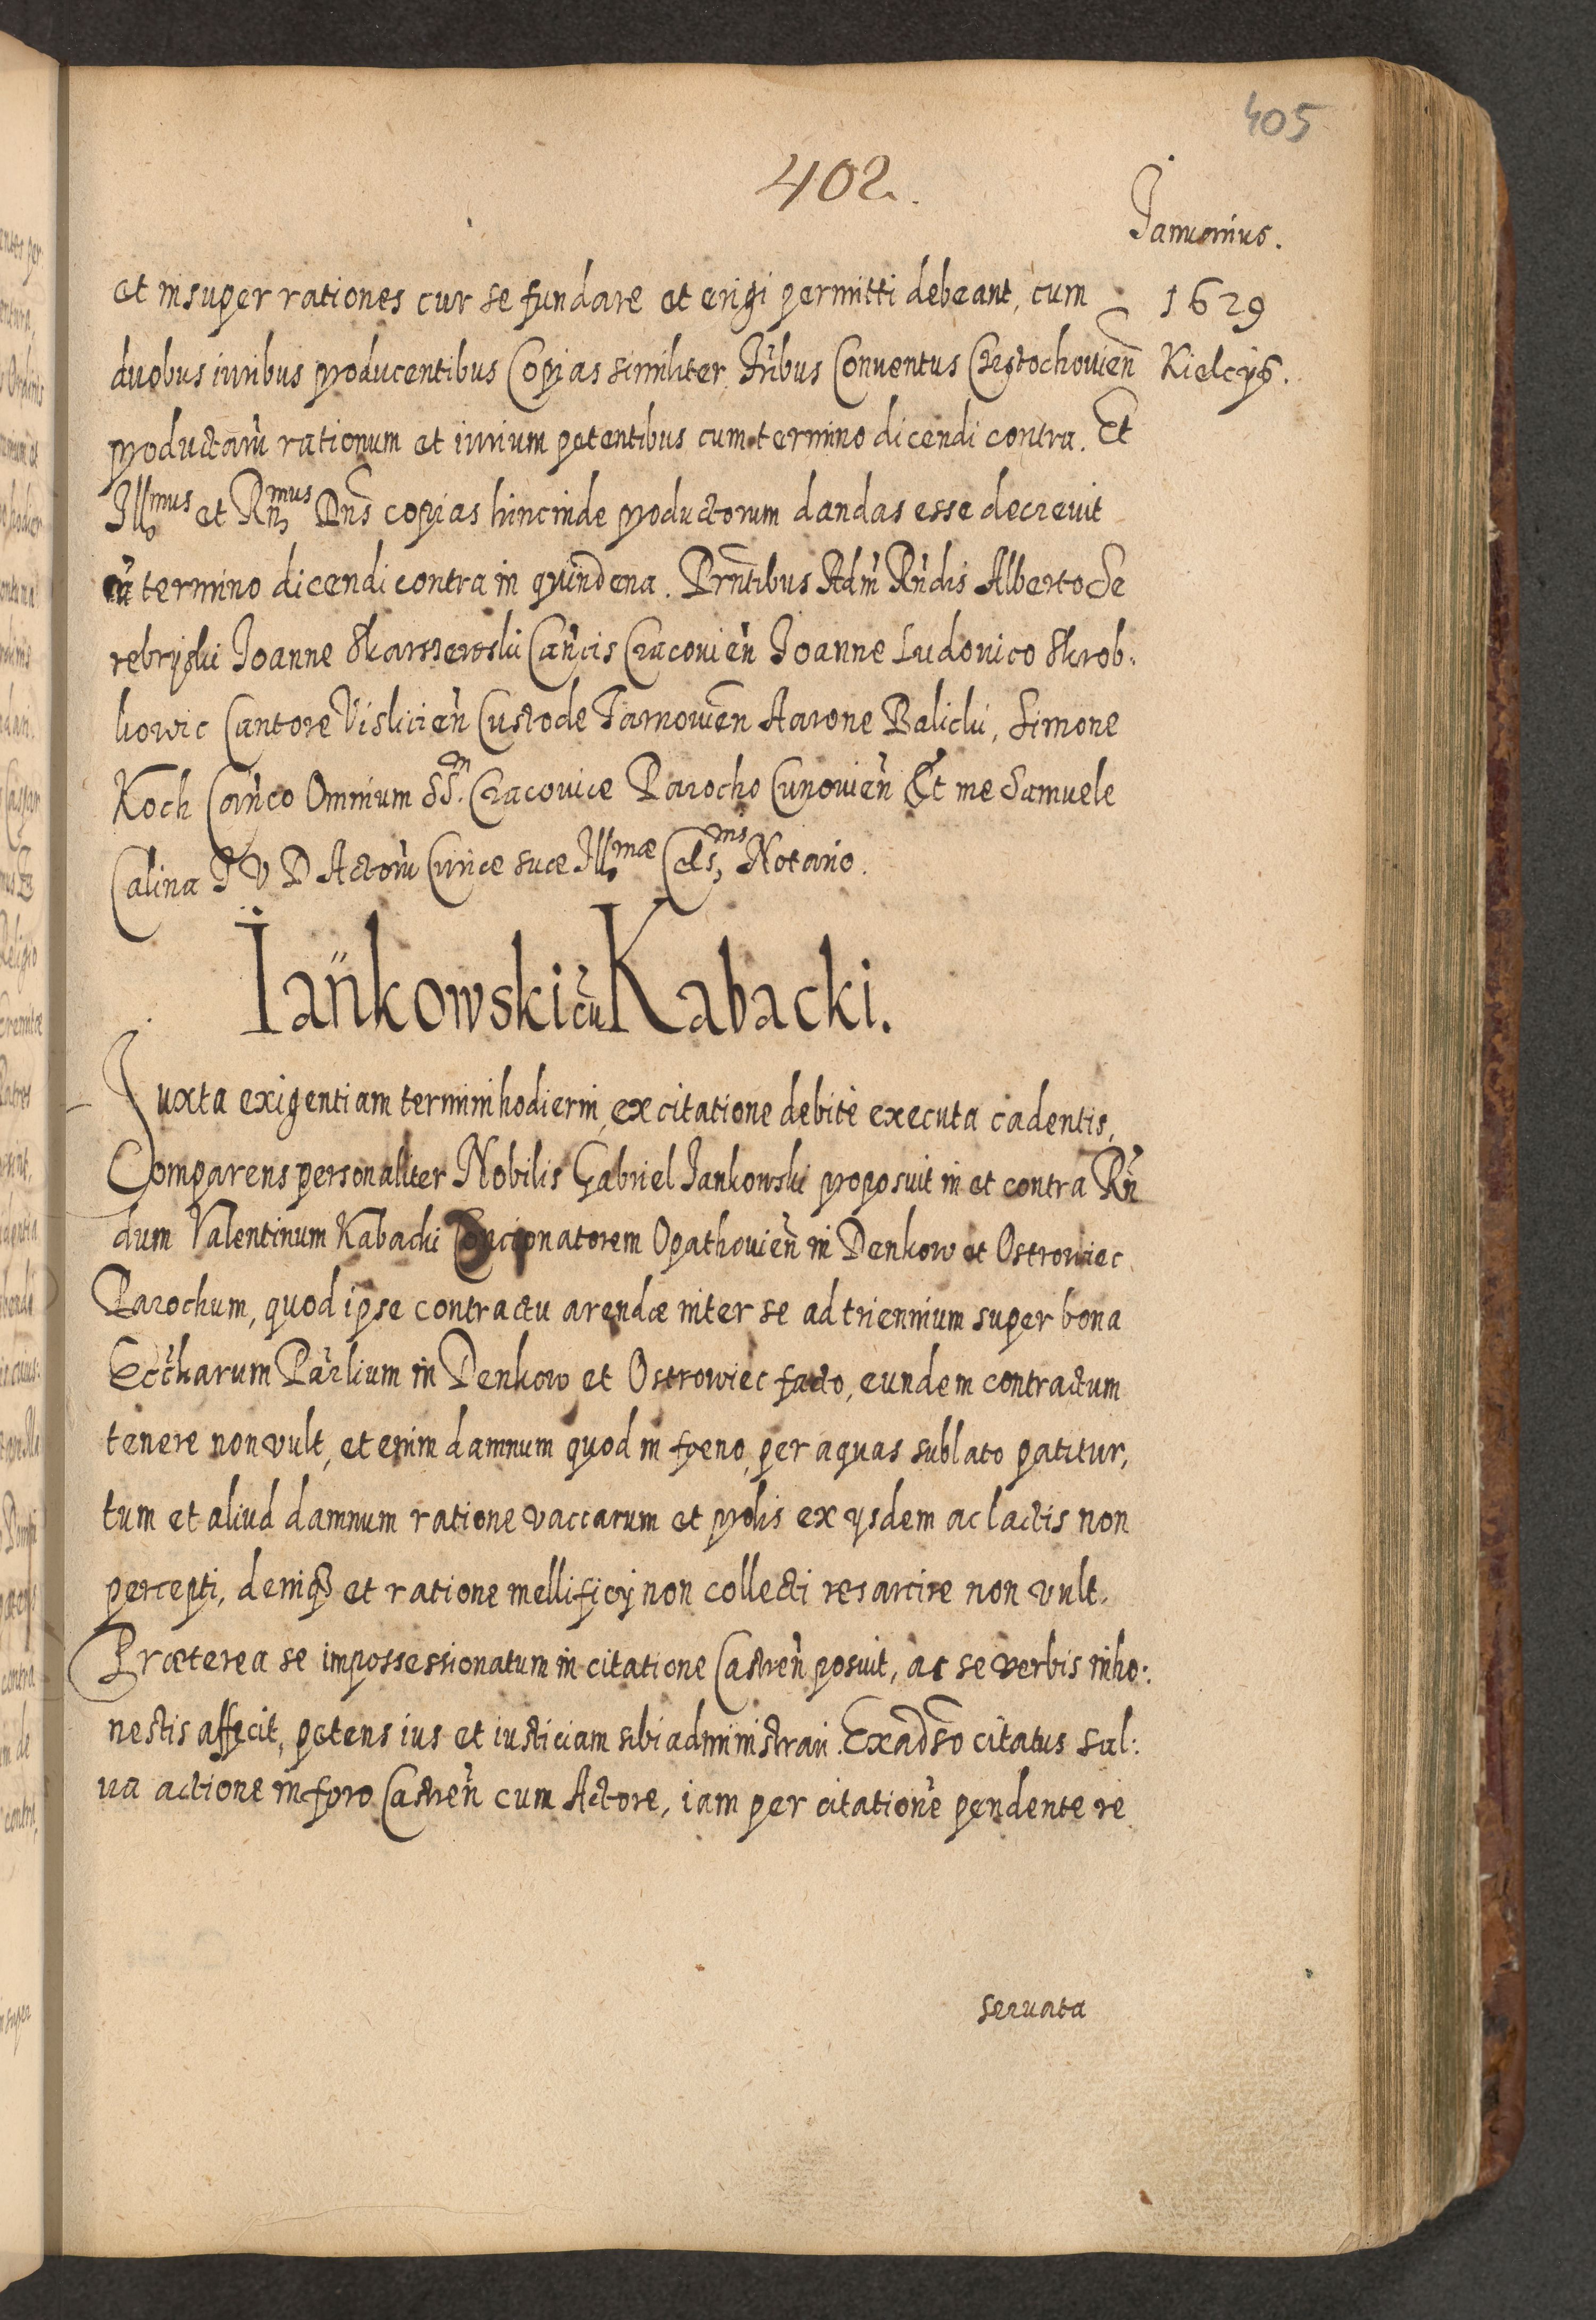 405
402.
Januarius.
1629
Kielcys.
et insuper rationes cur se fundare et erigi permitti debeant, cum
duobus iuribus producentibus Copias similiter Frībus Conuentus Czestochouien̄
productarū rationum et iurium petentibus cum termino dicendi contra. Et
Illmus et Rn̄mus Dn̄s copias hincinde productorum dandas esse decreuit
cū termino dicendi contra in quindena. Prn̄tibus Adm̄ Rn̄dis Alberto Se
rebrÿski Joanne Skarszewski Cancis Cracouien̄ Joanne Ludouico Skrob-
kowic Cantore Vislicien̄ Custode Tarnouien̄ Aarone Balicki, Simone
Koch Can̄co Omnium SS. Cracouiæ Parocho Cunouien̄ Et me Samuele
Calina J V D Actorū Curiæ suæ Illmæ Celsms Notario.
Iankowski cū Kabacki.
Juxta exigentiam termini hodierni, ex citatione debitè executa cadentis,
Comparens personaliter Nobilis Gabriel Jankowski proposuit in et contra Rn̄
dum Valentinum Kabacki Concionatorem Opathouien̄ in Denkow et Ostrowiec
Parochum, quod ipse contractu arendæ inter se ad triennium super bona
Ecc̄harum Par̄lium in Denkow et Ostrowiec facto, eundem contractum
tenere non vult, etenim damnum quod in foeno, per aquas sublato patitur,
tum et aliud damnum ratione vaccarum et prolis ex ysdem ac lactis non
percepti, deniq3 et ratione mellificÿ non collecti resarcire non vult.
Præterea se impossessionatum in citatione Castren̄ posuit, ac se verbis inho:
nestis affecit, petens ius et iusticiam sibi administrari. Exad̄so citatus sal:
ua actione in foro Castren̄ cum Actore, iam per citationē pendente re
seruata